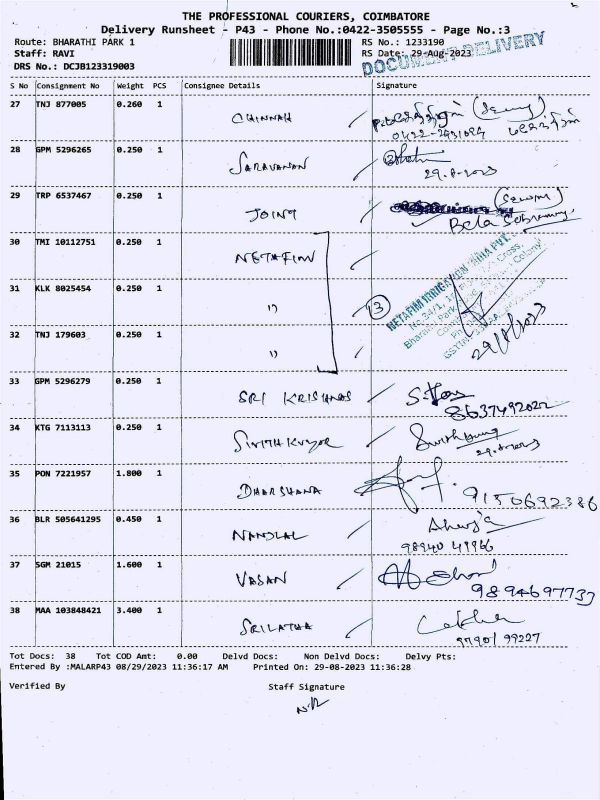 THE PROFESSIONAL COURIERS, COIMBATORE
Delivery Runsheet - P43 - Phone No.:0422-3505555 - Page No.:3
Route: BHARATHI PARK 1 RS No.: 1233190
Staff: RAVI RS Date: 29-Aug-2023
DRS No.: DCJB123319003 DOCUMENT DELIVERY
S No Consignment No Weight PCS Consignee Details Signature
27 TNJ 877005 0.260 1
CHINNAH
28 GPM 5296265 0.250 1
SARAVANAN
29.8.2023
29 TRP 6537467 0.250 1
JOING
Bela
30 TMI 10112751 0.250 1
NETAFIM
NETAFIM IRRIGATION INDIA PVT.
31 KLK 8025454 0.250 1
" 3
32 TNJ 179603 0.250 1
"
29/8/2023
33 GPM 5296279 0.250 1
SRI KRISHNAS
8637492022
34 KTG 7113113 0.250 1
29.8.2023
35 PON 7221957 1.800 1
DHARSHANA
9150692386
36 BLR 505641295 0.450 1
NANDLAL
98940 49966
37 SGM 21015 1.600 1
VASAN
9894697733
38 MAA 103848421 3.400 1
SRILATHA
97901 99227
Tot Docs: 38 Tot COD Amt: 0.00 Delvd Docs: Non Delvd Docs: Delvy Pts:
Entered By :MALARP43 08/29/2023 11:36:17 AM Printed On: 29-08-2023 11:36:28
Verified By Staff Signature